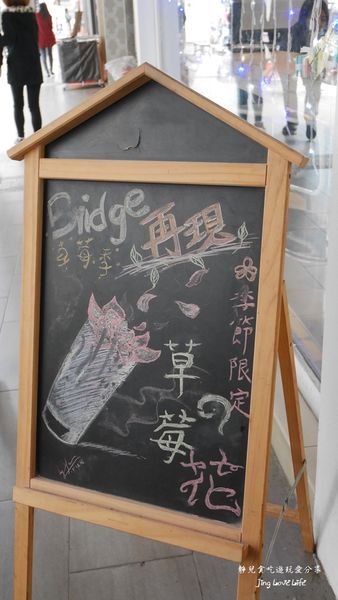 Bridge
草莓季
再現
季節限定
草莓花
靜兒貪吃遊玩愛分享
Jing Love Life